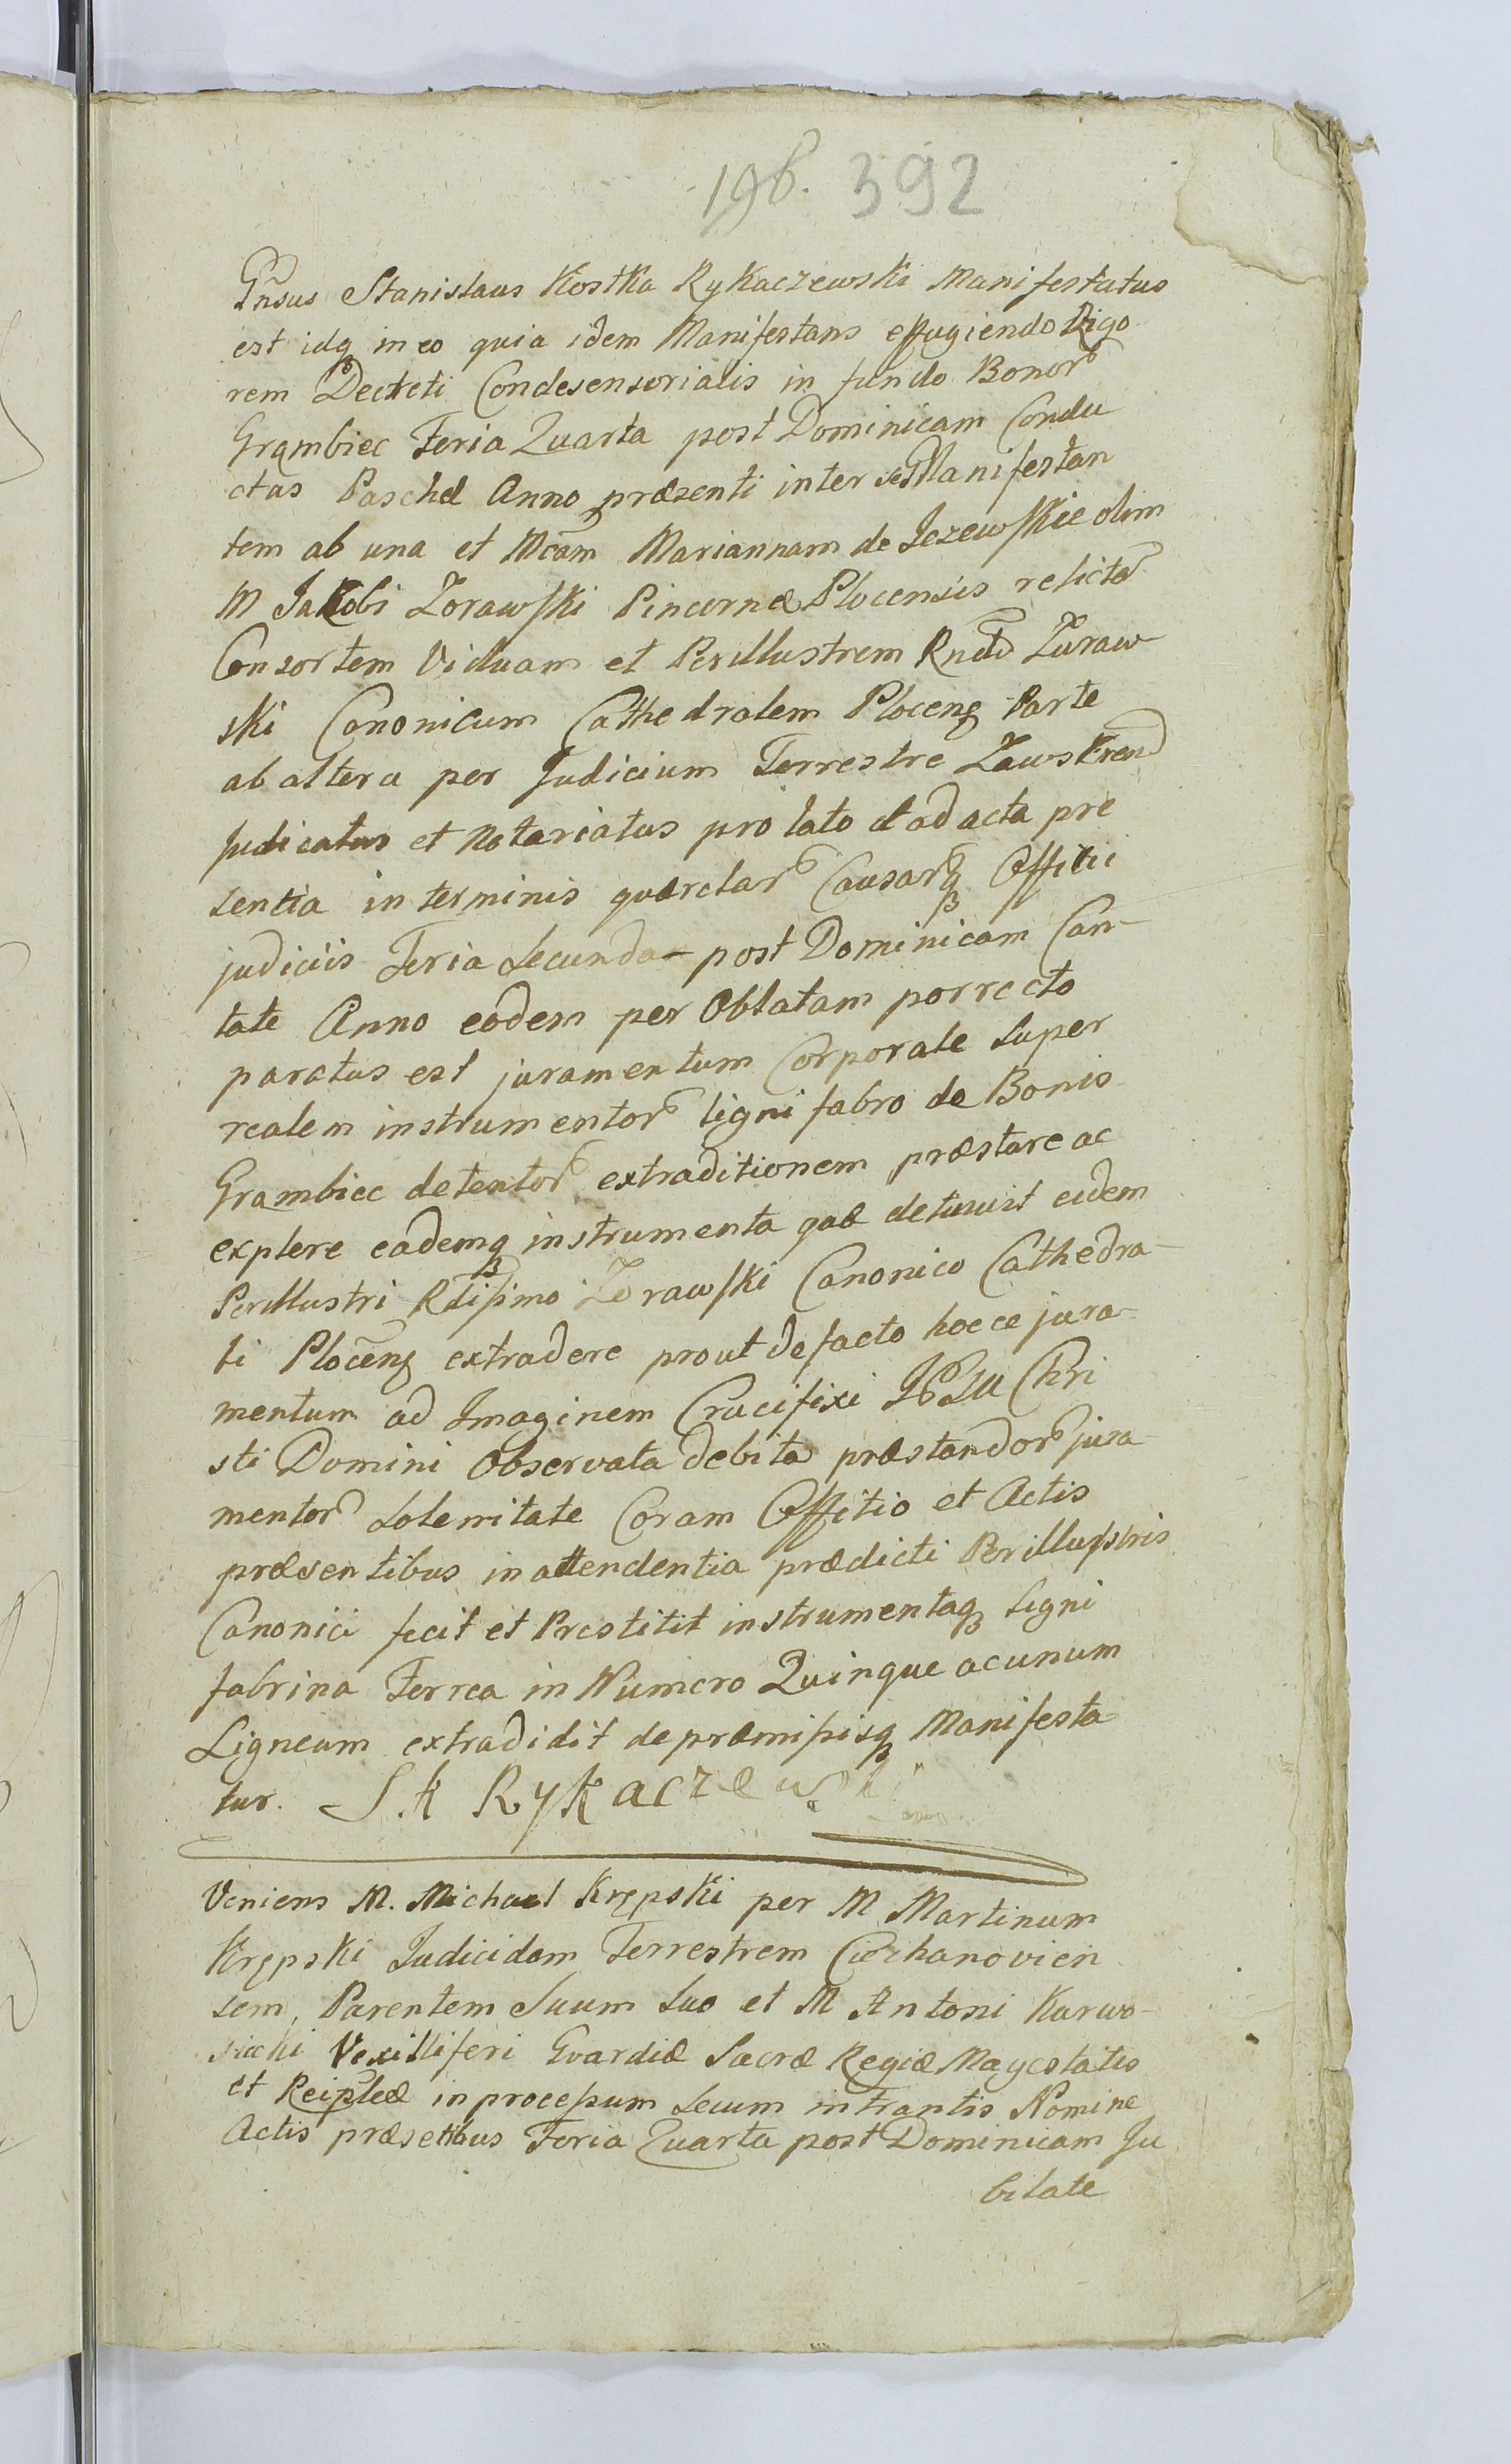 196. 392
Gnsus Stanislaus Kostka Rykaczewski Manifestatus
est idq in eo quia idem Manifestans effugiendo Rigo
rem Decreti Condesensorialis in fundo Bonor
Grąmbiec Feria Quarta post Dominicam Condu
ctus Paschæ Anno præsenti inter se Manifestan
tem ab una et Mcam Mariannam de Jezewskie olim
M Jakobi Zorawski Pincernæ Plocensis relictæ
Consortem Viduam et Perillustrem Rndd Zuraw
ski Canonicum Cathedralem Plocenq Parte
ab altera per Judicium Terrestre Zawskren
Judicatus et Notariatus pro lato et ad acta pre
sentia in terminis quærelar Causarq Officii
judiciis Feria Secunda post Dominicam Can-
tate Anno eodem per Oblatam porrecto
paratus est juramentum Corporale super
realem instrumentor ligni fabro de Bonis
Grambiec detentor extraditionem præstare ac
explere eademq instrumenta quæ detinuit eidem
Perillustri Rdissimo Zorawski Canonico Cathedra-
li Plocenq extradere prout de facto hocce jura-
mentum ad Imaginem Crucifixi JESU Chri
sti Domini Observata debita præstandor jura
mentor Solennitate Coram Offitio et Actis
præsentibus in attendentia prædicti Perillusstris
Canonici fecit et Prestitit instrumentaq Ligni
fabrina Ferrea in Numero Quinque ac unum
Ligneum extradidit de præmissisq Manifesta
tur. S. K Rykaczewski
Veniens M. Michael Krępski per M Martinum
Krępski Judicidam Terrestrem Ciechanovien
sem, Parentem Suum Suo et M Antoni Karwo-
siecki Vexilliferi Gvardiæ Sacræ Regiæ Mayestatis
et Reiplcæ in processum secum intrantis Nomine
Actis præsetibus Feria Quarta post Dominicam Ju
bilate